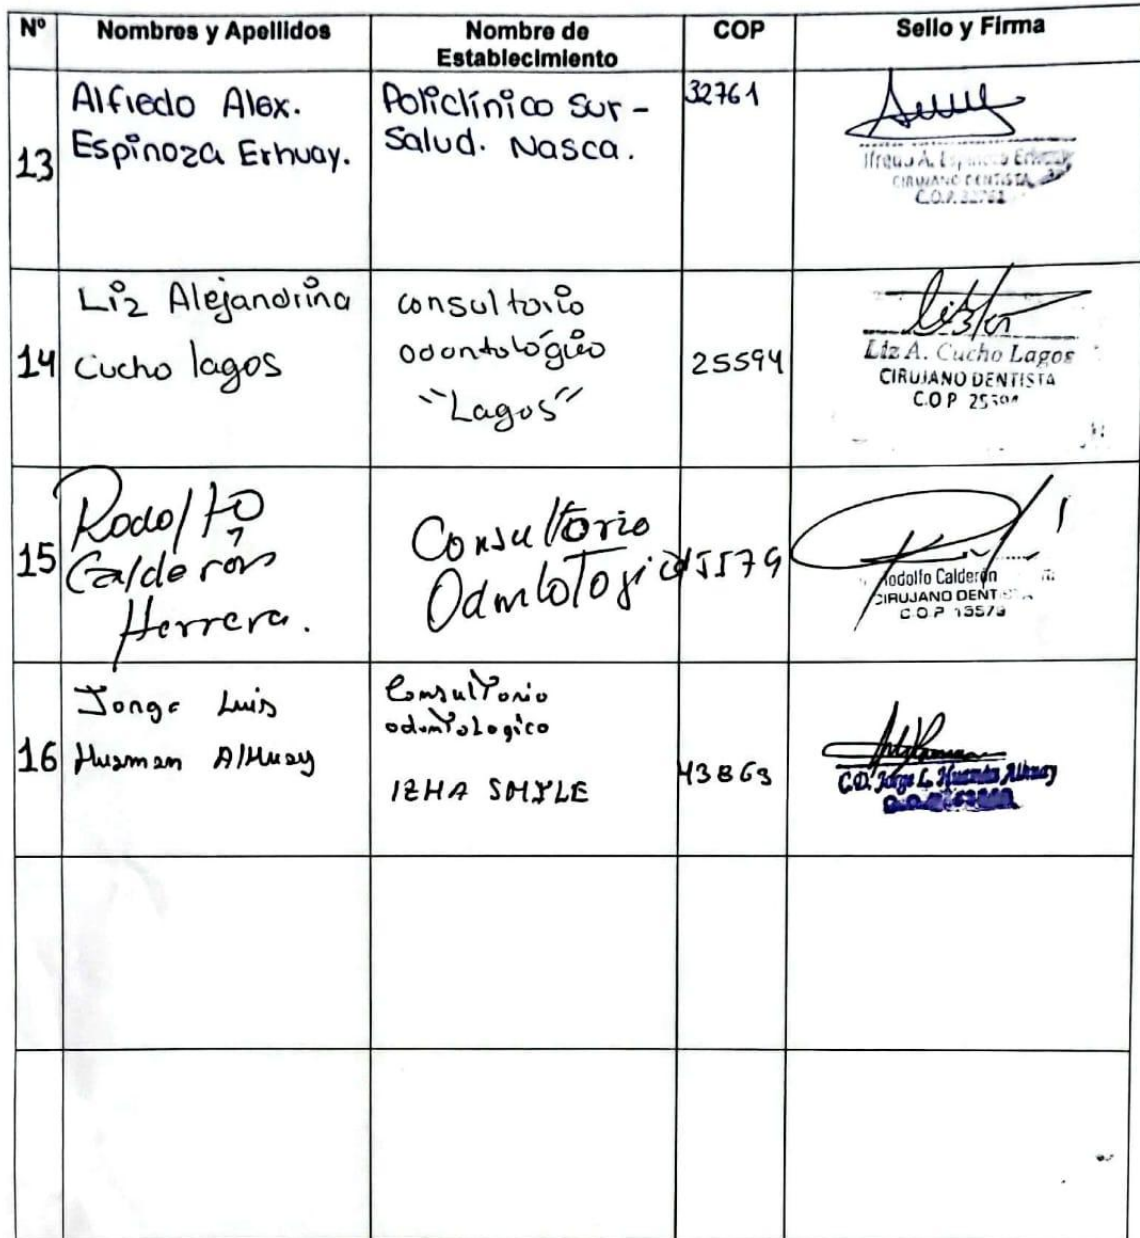 Nº Nombres y Apellidos Nombre de Establecimiento COP Sello y Firma
13
Alfredo Alex.
Espinoza Erhuay.
Policlínico Sur -
Salud. Nasca.
32761
CIRUJANO DENTISTA
C.O.P. 32761
14
Liz Alejandrina
Cucho lagos
consultorio
odontológico
"Lagos"
25594
Liz A. Cucho Lagos
CIRUJANO DENTISTA
C.O.P 25594
15
Rodolfo
Calderón
Herrera.
Consultorio
Odontologico
15579
Rodolfo Calderón
CIRUJANO DENTISTA
C.O.P 15579
16
Jorge Luis
Huaman Alhuay
Consultorio
odontologico
IZHA SMYLE
43863
C.D. Jorge L. Huamán Alhuay